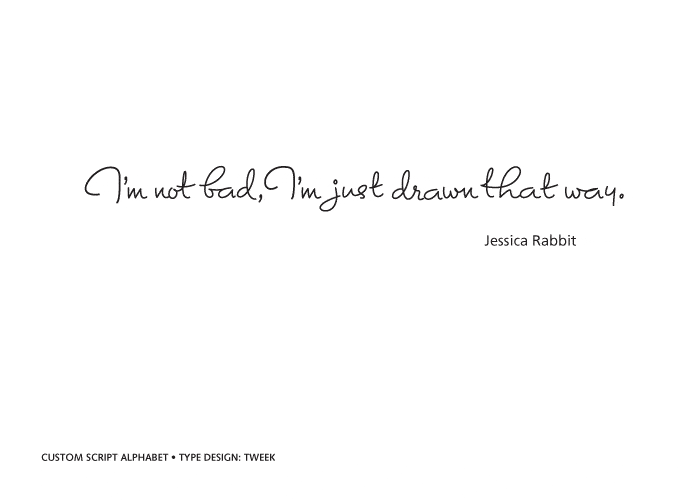 I'm not bad, I'm just drawn that way.
Jessica Rabbit
CUSTOM SCRIPT ALPHABET • TYPE DESIGN: TWEEK